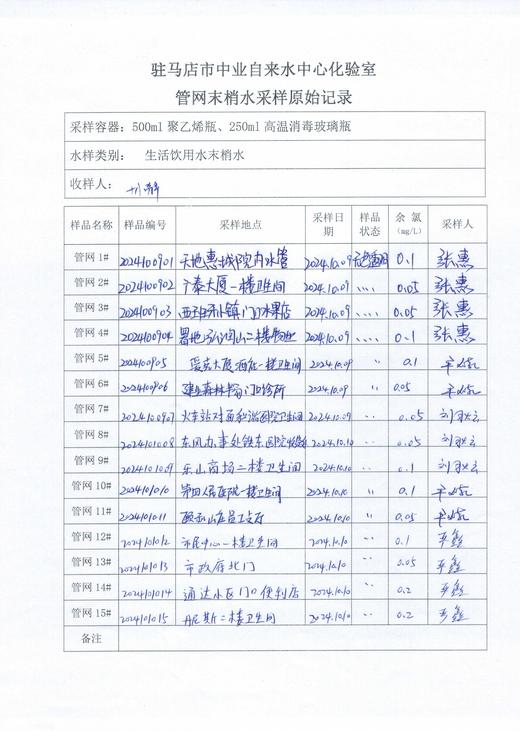 驻马店市中业自来水中心化验室
管网末梢水采样原始记录
采样容器：500ml 聚乙烯瓶、250ml 高温消毒玻璃瓶
水样类别： 生活饮用水末梢水
收样人：
样品名称 样品编号 采样地点 采样日期 样品状态 余 氯 (mg/L) 采样人
管网 1# 2024100901 天地惠城院内水管 2024.10.09 无色透明 0.1 张惠
管网 2# 2024100902 广泰大厦一楼卫生间 2024.10.09 〃 0.05 张惠
管网 3# 2024100903 门水果店 2024.10.09 〃 0.05 张惠
管网 4# 2024100904 二楼 2024.10.09 〃 0.1 张惠
管网 5# 2024100905 爱克大厦西在一楼卫生间 2024.10.09 〃 0.1
管网 6# 2024100906 建业森林半岛门口诊所 2024.10.09 〃 0.05
管网 7# 2024100907 火车站对面和谐医院卫生间 2024.10.09 〃 0.05
管网 8# 2024101008 东风办事处铁东医院 2024.10.10 〃 0.05
管网 9# 2024101009 乐山商场二楼卫生间 2024.10.10 〃 0.1
管网 10# 2024101010 第四人民医院一楼卫生间 2024.10.10 〃 0.1
管网 11# 2024101011 颐和山庄员工食厅 2024.10.10 〃 0.05
管网 12# 2024101012 市民中心一楼卫生间 2024.10.10 〃 0.1
管网 13# 2024101013 市政府北门 2024.10.10 〃 0.05
管网 14# 2024101014 通达小区门口便利店 2024.10.10 〃 0.2
管网 15# 2024101015 丹尼斯二楼卫生间 2024.10.10 〃 0.2
备注